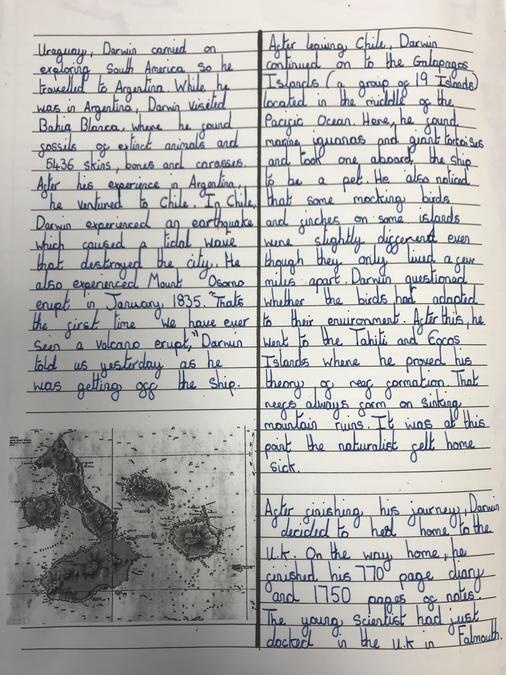 Uraguay, Darwin carried on
exploring South America so he
travelled to Argentina. While he
was in Argentina, Darwin visited
Bahia Blanca, where he found
fossils of extinct animals and
5436 skins, bones and carcasses.
After his experience in Argentina,
he ventured to Chile. In Chile,
Darwin experienced an earthquake
which caused a tidal wave
that destroyed the city. He
also experienced Mount Osorno
erupt in January 1835. "Thats
the first time we have ever
seen a volcano erupt," Darwin
told us yesterday as he
was getting off the ship.
After leaving Chile, Darwin
continued on to the Galapagos
Islands (a group of 19 Islands)
located in the middle of the
Pacific Ocean. Here, he found
marine iguanas and giant tortoises
and took one aboard the ship
to be a pet. He also noticed
that some mocking birds
and finches on some islands
were slightly different even
though they only lived a few
miles apart. Darwin questioned
whether the birds had adapted
to their environment. After this, he
went to the Tahiti and Cocos
Islands where he proved his
theory of reef formation. That
reefs always form on sinking
mountain ruins. It was at this
point the naturalist felt home
sick.
After finishing his journey, Darwin
decided to head home to the
U.K. On the way home, he
finished his 770 page diary
and 1750 pages of notes.
The young scientist had just
docked in the U.K in Falmouth.